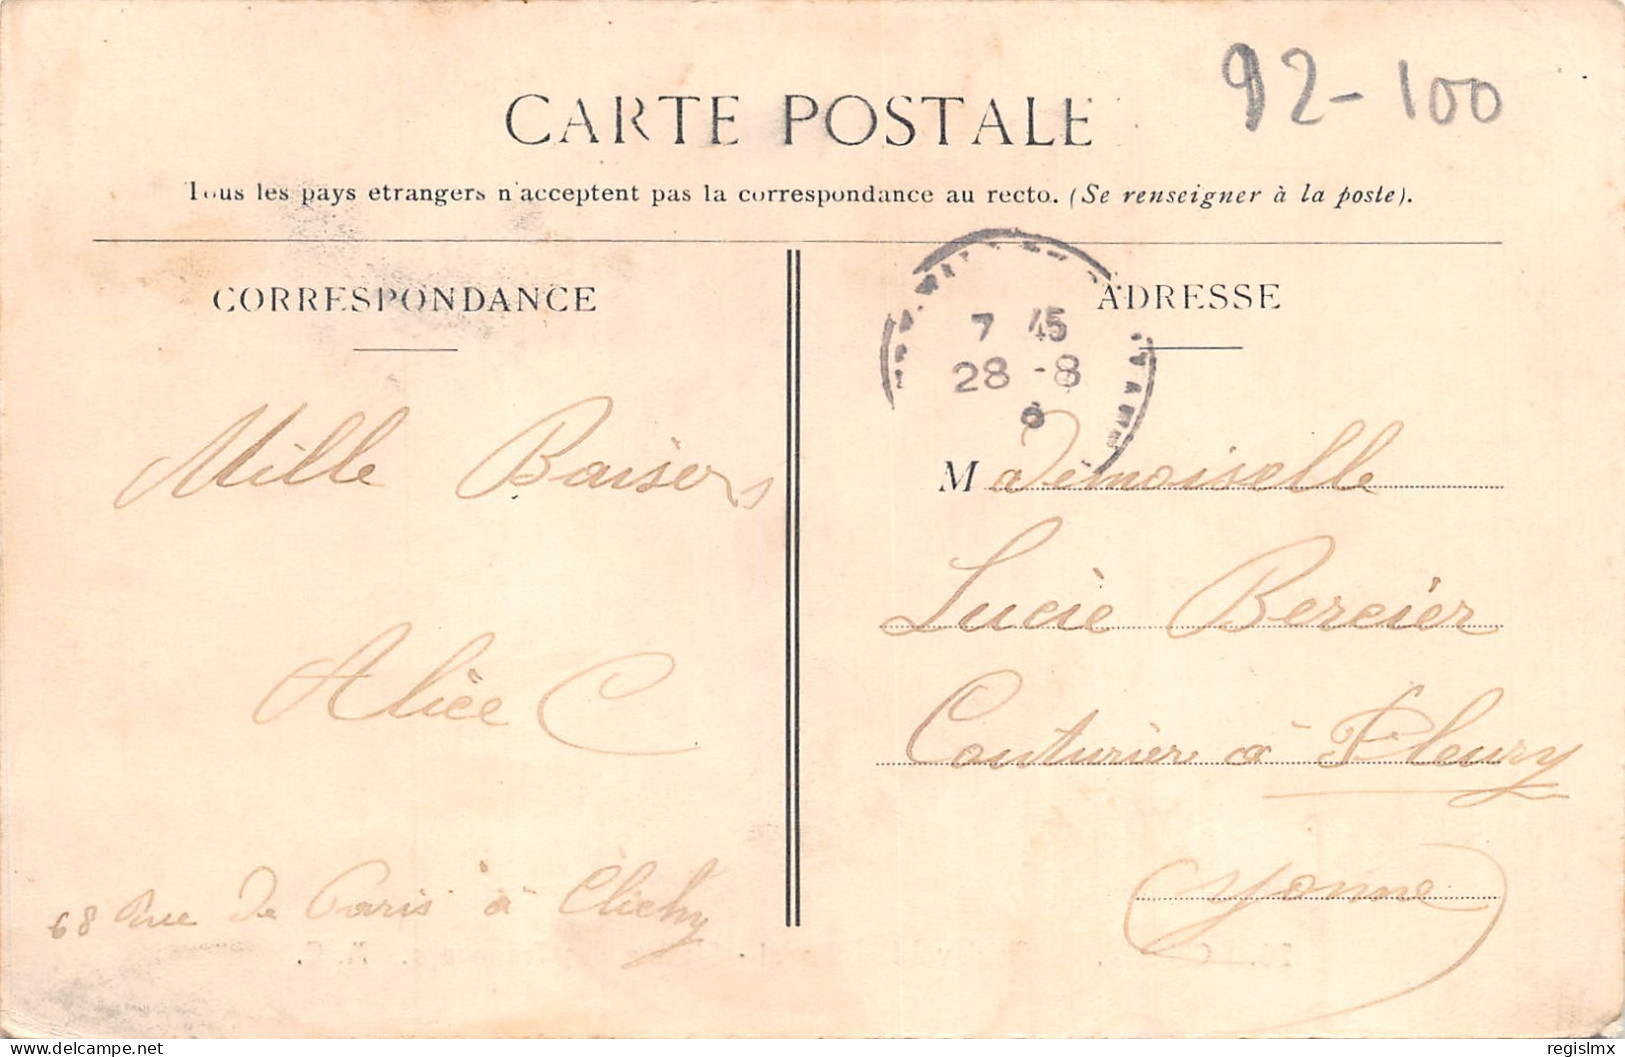 92-100
CARTE POSTALE
Tous les pays etrangers n'acceptent pas la correspondance au recto. (Se renseigner à la poste).
CORRESPONDANCE
Mille Baisers
Alice C
68 Rue de Paris à Clichy
ADRESSE
7 45
28 -8
Mademoiselle
Lucie Bercier
Couturière à Fleury
Yonne
delcampe.net
regislmx